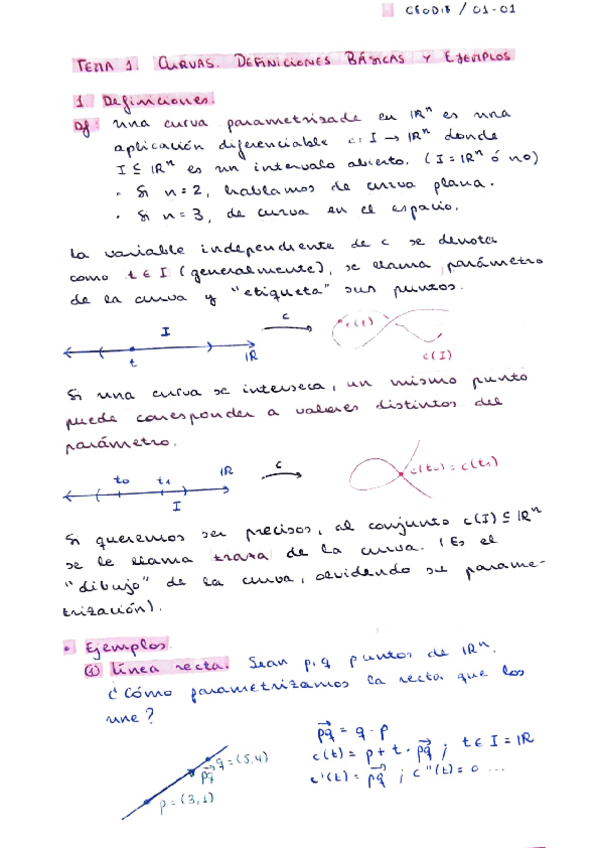 GEODIF / 01-01
TEMA 1. CURVAS. DEFINICIONES BÁSICAS Y EJEMPLOS
1 Definiciones.
Df: una curva parametrizada en ℝⁿ es una
aplicación diferenciable c: I → ℝⁿ donde
I ⊆ ℝⁿ es un intervalo abierto. (I = ℝⁿ ó no)
· Si n=2, hablamos de curva plana.
· Si n=3, de curva en el espacio.
La variable independiente de c se denota
como t ∈ I (generalmente), se llama parámetro
de la curva y "etiqueta" sus puntos.
I c c(t)
t ℝ c(I)
Si una curva se interseca, un mismo punto
puede corresponder a valores distintos del
parámetro.
t₀ t₁ ℝ c c(t₀) = c(t₁)
I
Si queremos ser precisos, al conjunto c(I) ⊆ ℝⁿ
se le llama traza de la curva. (Es el
"dibujo" de la curva, olvidando su parame-
trización).
• Ejemplos.
① Línea recta. Sean p, q puntos de ℝⁿ.
¿Cómo parametrizamos la recta que los
une?
pq⃗ = q - p
c(t) = p + t · pq⃗ ; t ∈ I = ℝ
c'(t) = pq⃗ ; c''(t) = 0 ...
q = (5,4)
pq⃗
p = (3,1)